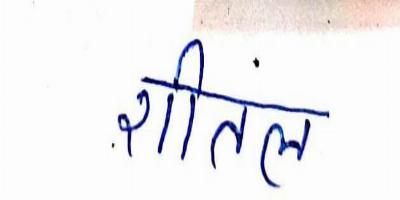 शीतल